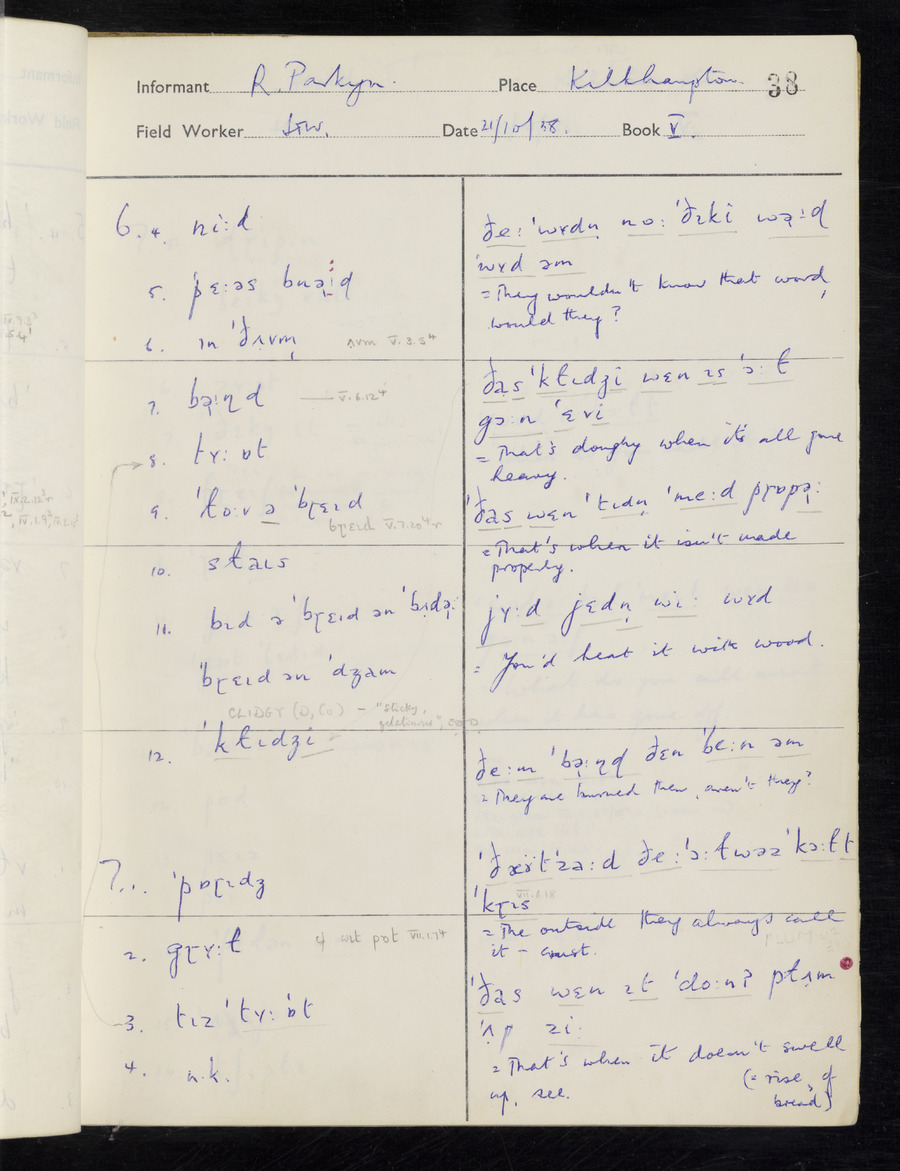 Informant R. Parkyn. Place Kilkhampton. 38
Field Worker Date 21/10/58. Book V.
6. 4. ni:d
5.
6. V.8.5⁴
7. V.6.12⁴
8. tʏ: ɒt
9. 'to:v ə 'bɽɛɪd
bɽɛɪd V.7.20⁴r
10. staɪs
11. bɪd ə 'bɽɛɪd ən 'bɪdə̣:
'bɽɛɪd ən 'dʒam
CLIDGY (D, Co) – "sticky,
gelatinous",
12. 'kɫɪdʒi
7. 1. 'pɒɽɪdʒ
2. gɽʏ:ɫ pot VII.1.7⁴
3. tɪz 'tʏ: ɒt
4. n.k.
ðe: 'wʏdn̩ no: 'ðɪki wə̣:d
'wʏd əm
= They wouldn't know that word,
would they?
ðas 'kɫɪdʒi wɛn ɪs 'ɔ:ɫ
gɔ:n 'ɛvi
= That's doughy when it's all gone
heavy.
ðas wɛn 'tɪdn̩ 'me:d pɽɒpə̣:
= That's when it isn't made
properly.
jʏ:d jɛdn̩ wi: wʏd
= You'd heat it with wood.
ðe:m 'bə̣:ɳd ðɛn 'be:n əm
= They are burned then, aren't they?
ðe: 'ɔ:ɫwəz 'kɔ:ɫ t
'kɽɪs VII.6.18
= The outside they always call
it – crust.
'ðas wɛn ɪt 'do:nʔ pɫɪm
'ʌp zi:
= That's when it doesn't swell
up, see. (= rise, of
bread)